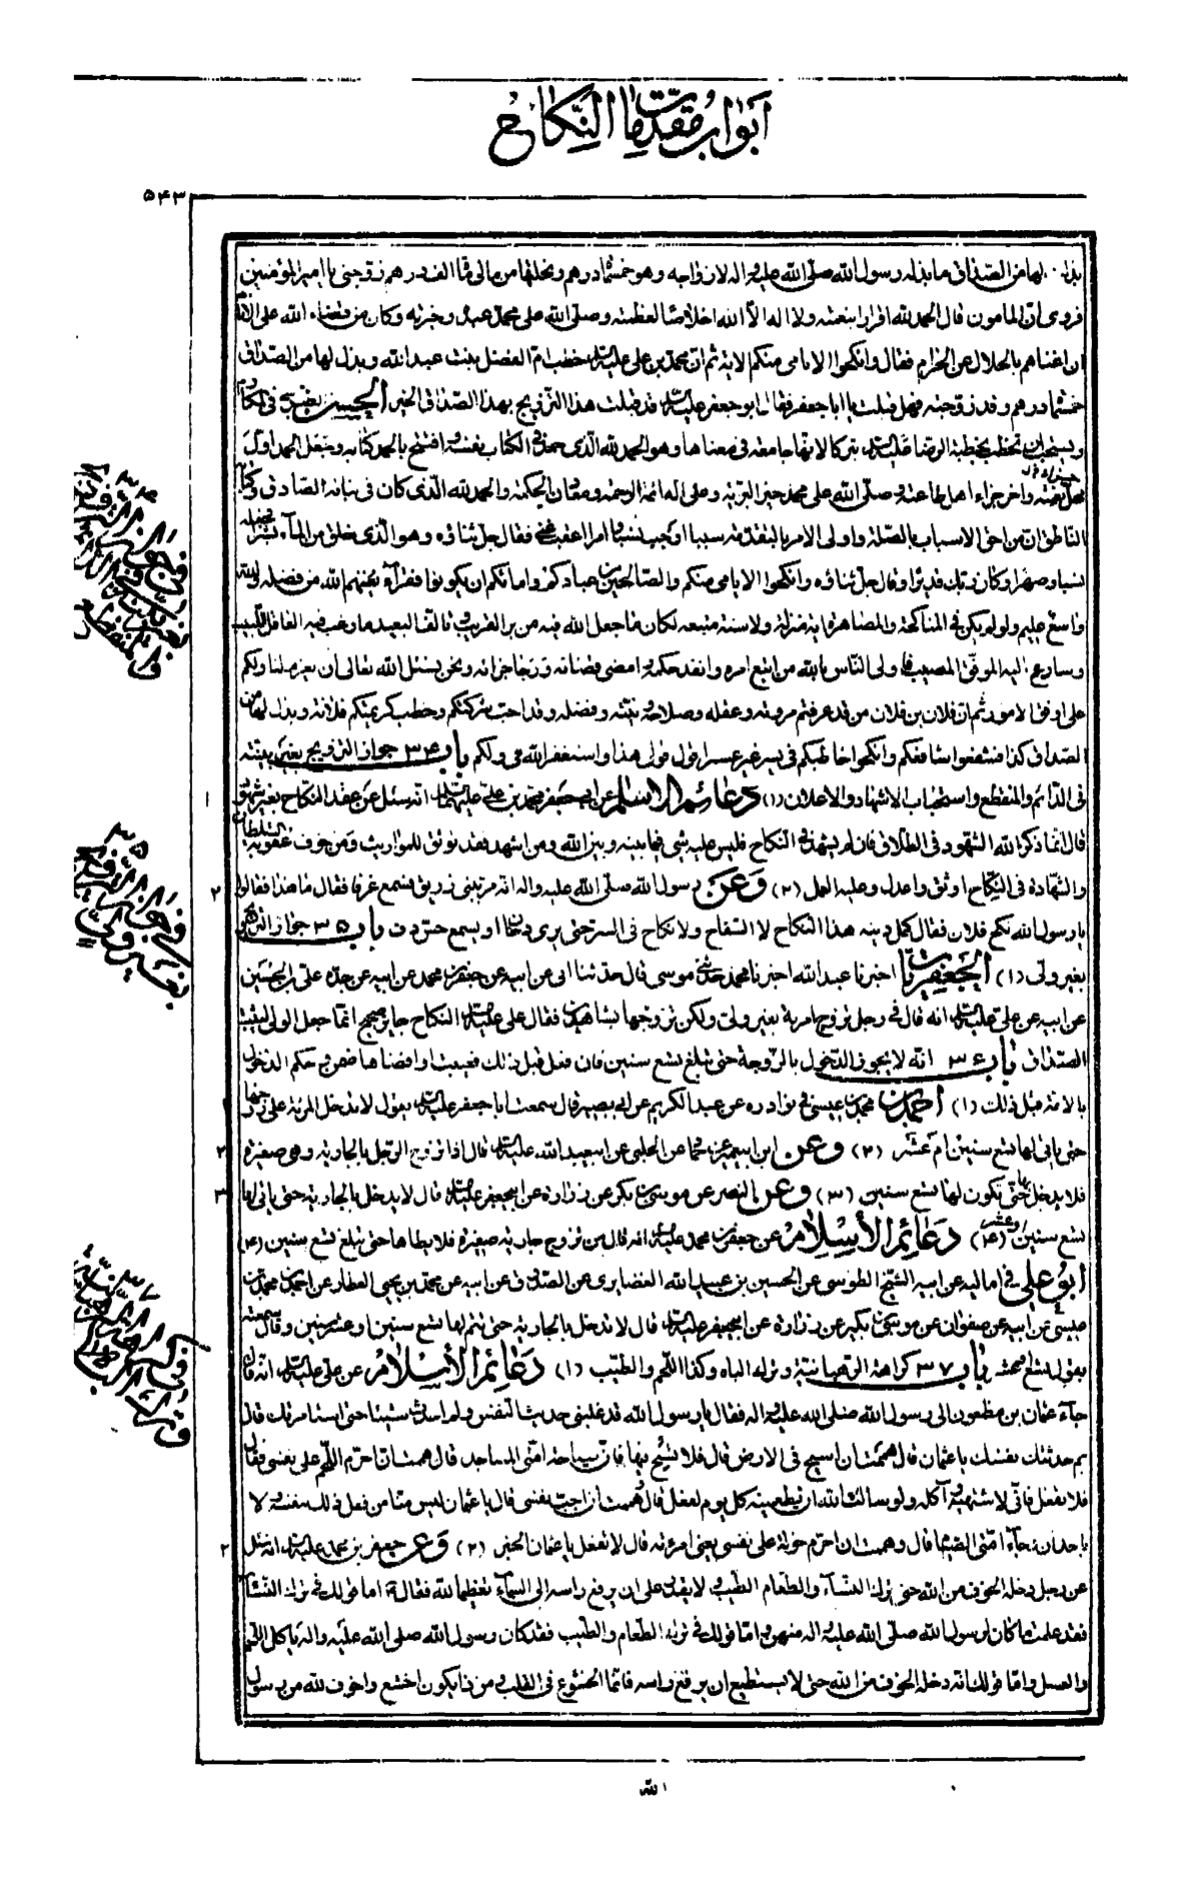 ابواب مقدمات النكاح
۵۴۳
لها من الصداق ما بذله رسول الله صلى الله عليه واله لازواجه وهو خمسمائة درهم ونحلتها من مالي مائة الف درهم زوجني يا امير المؤمنين
فروى ان المامون قال الحمد لله اقرارا بنعمته ولا اله الا الله اخلاصا لعظمته وصلى الله على محمد عبده وخيرته وكان من قضاء الله على الانام
ان اغناهم بالحلال عن الحرام فقال وانكحوا الايامى منكم الاية ثم ان محمد بن علي عليه السلام خطب ام الفضل بنت عبد الله وبذل لها من الصداق
خمسمائة درهم وقد زوجته فهل قبلت يا ابا جعفر فقال ابو جعفر عليه السلام قد قبلت هذا التزويج بهذا الصداق الخبر الحسن بن فضل في المكارم
ويستحب ان تخطب بخطبة الرضا عليه السلام تبركا لانها جامعة في معناها وهو الحمد لله الذي حمد في الكتاب نفسه وافتتح بالحمد كتابه وجعل الحمد اول
محل نعمته واخر جزاء اهل طاعته وصلى الله على محمد خير البرية وعلى اله ائمة الرحمة ومعادن الحكمة والحمد لله الذي كان في نبائه الصادق وكتابه
الناطق ان من احق الاسباب بالصلة واولى الامور بالتقدمة سببا اوجب نسبا وامرا اعقب غنى فقال جل ثناؤه وهو الذي خلق من المآء بشرا فجعله
نسبا وصهرا وكان ربك قديرا وقال جل ثناؤه وانكحوا الايامى منكم والصالحين من عبادكم وامائكم ان يكونوا فقرآء يغنهم الله من فضله والله
واسع عليم ولو لم يكن في المناكحة والمصاهرة اية منزلة ولا سنة متبعة لكان ما جعل الله فيه من بر القريب وتالف البعيد ما رغب فيه العاقل اللبيب
وسارع اليه الموفق المصيب فاولى الناس بالله من اتبع امره وانفذ حكمه وامضى قضائه ورجا جزائه ونحن نسئل الله تعالى ان يعزم لنا ولكم
على اوفق الامور ثم ان فلان بن فلان من قد عرفتم مروته وعقله وصلاحه ونيته وفضله وقد احب شركتكم وخطب كريمتكم فلانة وبذل لها من
الصداق كذا فشفعوا شافعكم وانكحوا خاطبكم في يسر غير عسر اقول قولي هذا واستغفر الله لي ولكم باب ۳۴ جواز التزويج بغير بينة
في الدائم والمنقطع واستحباب الاشهاد والاعلان (۱) دعائم الاسلام عن ابي جعفر محمد بن علي عليهما السلام انه سئل عن عقد النكاح بغير شهود
۱
قال انما ذكر الله الشهود في الطلاق فان لم يشهد في النكاح فليس عليه شي فيما بينه وبين الله ومن اشهد فقد توثق للمواريث ومن خوف عقوبة السلطان
والشهادة في النكاح اوثق واعدل وعليه العمل (۲) وعن رسول الله صلى الله عليه واله انه مر ببني زريق فسمع عزفا فقال ما هذا فقالوا
۲
يا رسول الله نكح فلان فقال كمل دينه هذا النكاح لا السفاح ولا نكاح في السر حتى يرى دخان او يسمع حس دف باب ۳۵ جواز التزويج
بغير ولي (۱) الجعفريات اخبرنا عبد الله اخبرنا محمد حدثني موسى قال حدثنا ابي عن ابيه عن جعفر بن محمد عن ابيه عن جده علي بن الحسين
عن ابيه عن علي عليه السلام انه قال في رجل تزوج امرية بغير ولي ولكن تزوجها بشاهدين فقال علي عليه السلام النكاح جايز صحيح انما جعل الولي ليثبت
الصداق باب ۳۶ انه لا يجوز الدخول بالزوجة حتى تبلغ تسع سنين فان فعل قبل ذلك فعيبت او افضاها ضمن وحكم الدخول
بالامة قبل ذلك (۱) احمد بن محمد بن عيسى في نوادره عن عبد الكريم عن ابي بصير قال سمعت ابا جعفر عليه السلام يقول لا تدخل المرئة على زوجها
حتى ياتي لها تسع سنين ام عشر (۲) وعن ابن ابي عمير عن حماد عن الحلبي عن ابي عبد الله عليه السلام قال اذا تزوج الرجل بالجارية وهي صغيرة
۲
فلا يدخل بها حتى تكون لها تسع سنين (۳) وعن النضر عن موسى بن بكر عن زرارة عن ابي جعفر عليه السلام قال لا يدخل بالجارية حتى ياتي لها
۳
تسع سنين او عشر (۴) دعائم الاسلام عن جعفر بن محمد عليهما السلام انه قال من تزوج جارية صغيرة فلا يطاها حتى تبلغ تسع سنين (۵)
ابو علي في اماليه عن ابيه الشيخ الطوسي عن الحسين بن عبيد الله الغضايري عن الصدوق عن ابيه عن محمد بن يحيى العطار عن احمد بن محمد بن
عيسى عن ابيه عن صفوان عن موسى بن بكير عن زرارة عن ابي جعفر عليه السلام قال لا تدخل بالجارية حتى تتم لها تسع سنين او عشر سنين وقال سمعته
يقول تسع او عشر باب ۳۷ كراهة الرهبانية وترك الباه وكذا اللحم والطيب (۱) دعائم الاسلام عن علي عليه السلام انه قال
جآء عثمان بن مظعون الى رسول الله صلى الله عليه واله فقال يا رسول الله قد غلبني حديث النفس ولم احدث شيئا حتى استامرتك قال
بم حدثتك نفسك يا عثمان قال هممت ان اسيح في الارض قال فلا تسيح فيها فان سياحة امتي المساجد قال هممت ان احرم اللحم على نفسي فقال
فلا تفعل فاني لاشتهيه وآكله ولو سالت الله ان يطعمنيه كل يوم لفعل قال وهممت ان اجب نفسي قال يا عثمان ليس منا من فعل ذلك بنفسه ولا
باحد ان وجآء امتي الصيام قال وهممت ان احرم خولة على نفسي يعني امرءته قال لا تفعل يا عثمان الخبر (۲) وعن جعفر بن محمد عليهما السلام انه سئل
۲
عن رجل دخله الخوف من الله حتى ترك النسآء والطعام الطيب ولا يقدر على ان يرفع راسه الى السمآء تعظيما لله فقال اما قولك في ترك النسآء
فقد علمت ما كان لرسول الله صلى الله عليه واله منهن واما قولك في ترك الطعام والطيب فقد كان رسول الله صلى الله عليه واله ياكل اللحم
والعسل واما قولك انه دخله الخوف من الله حتى لا يستطيع ان يرفع راسه فانما الخشوع في القلب ومن ذا يكون اخشع واخوف لله من رسول
الله